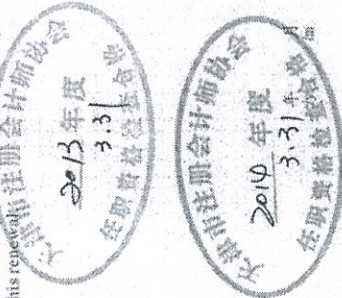 this renewal:
天津市注册会计师协会
2013 年度
3.31
任职资格检查合格
天津市注册会计师协会
2014 年度
3.31
任职资格检查合格
年 月 日